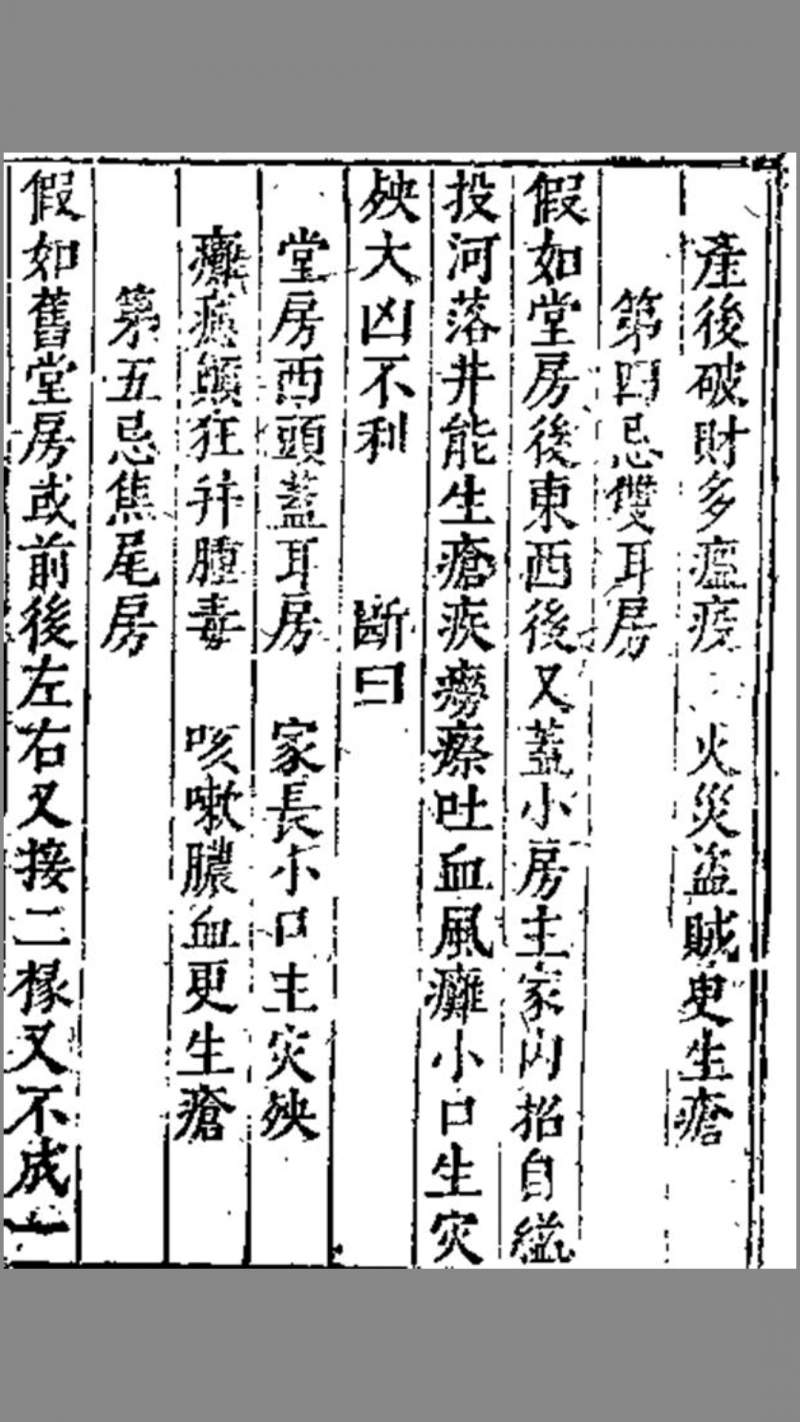 產後破財多瘟疫　火災盜賊更生瘡
第四忌雙耳房
假如堂房後東西後又蓋小房主家內招自縊
投河落井能生瘡疾癆瘵吐血風癱小口生灾
殃大凶不利　斷曰
堂房西頭蓋耳房　家長小口主灾殃
癱顛狂并腫毒　咳嗽膿血更生瘡
第五忌焦尾房
假如舊堂房或前後左右又接二椽又不成一